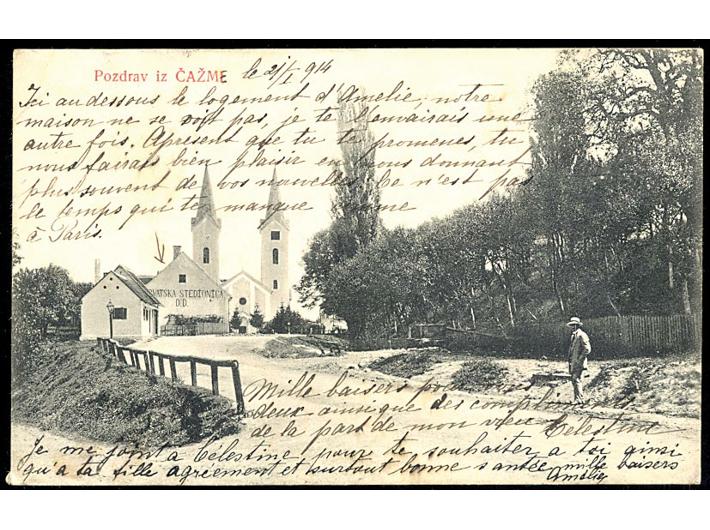 Pozdrav iz ČAŽME le 2/I 914
Ici au dessous le logement d'Amelie, notre
maison ne se voit pas, je te l'envairais une
autre fois. Apresent que tu te promenes, tu
nous fairais bien plaisir en nous donnant
plus souvent de vos nouvelles. Ce n'est pas
le temps qui te manque comme
à Paris.
HRVATSKA ŠTEDIONICA
D.D.
Mille baisers pour
deux ainsi que des compliments
de la part de mon vieux Célestine
Je me joint a Célestine pour te souhaiter a toi ainsi
qu'a ta fille agréement et surtout bonne santée mille baisers
Amélie